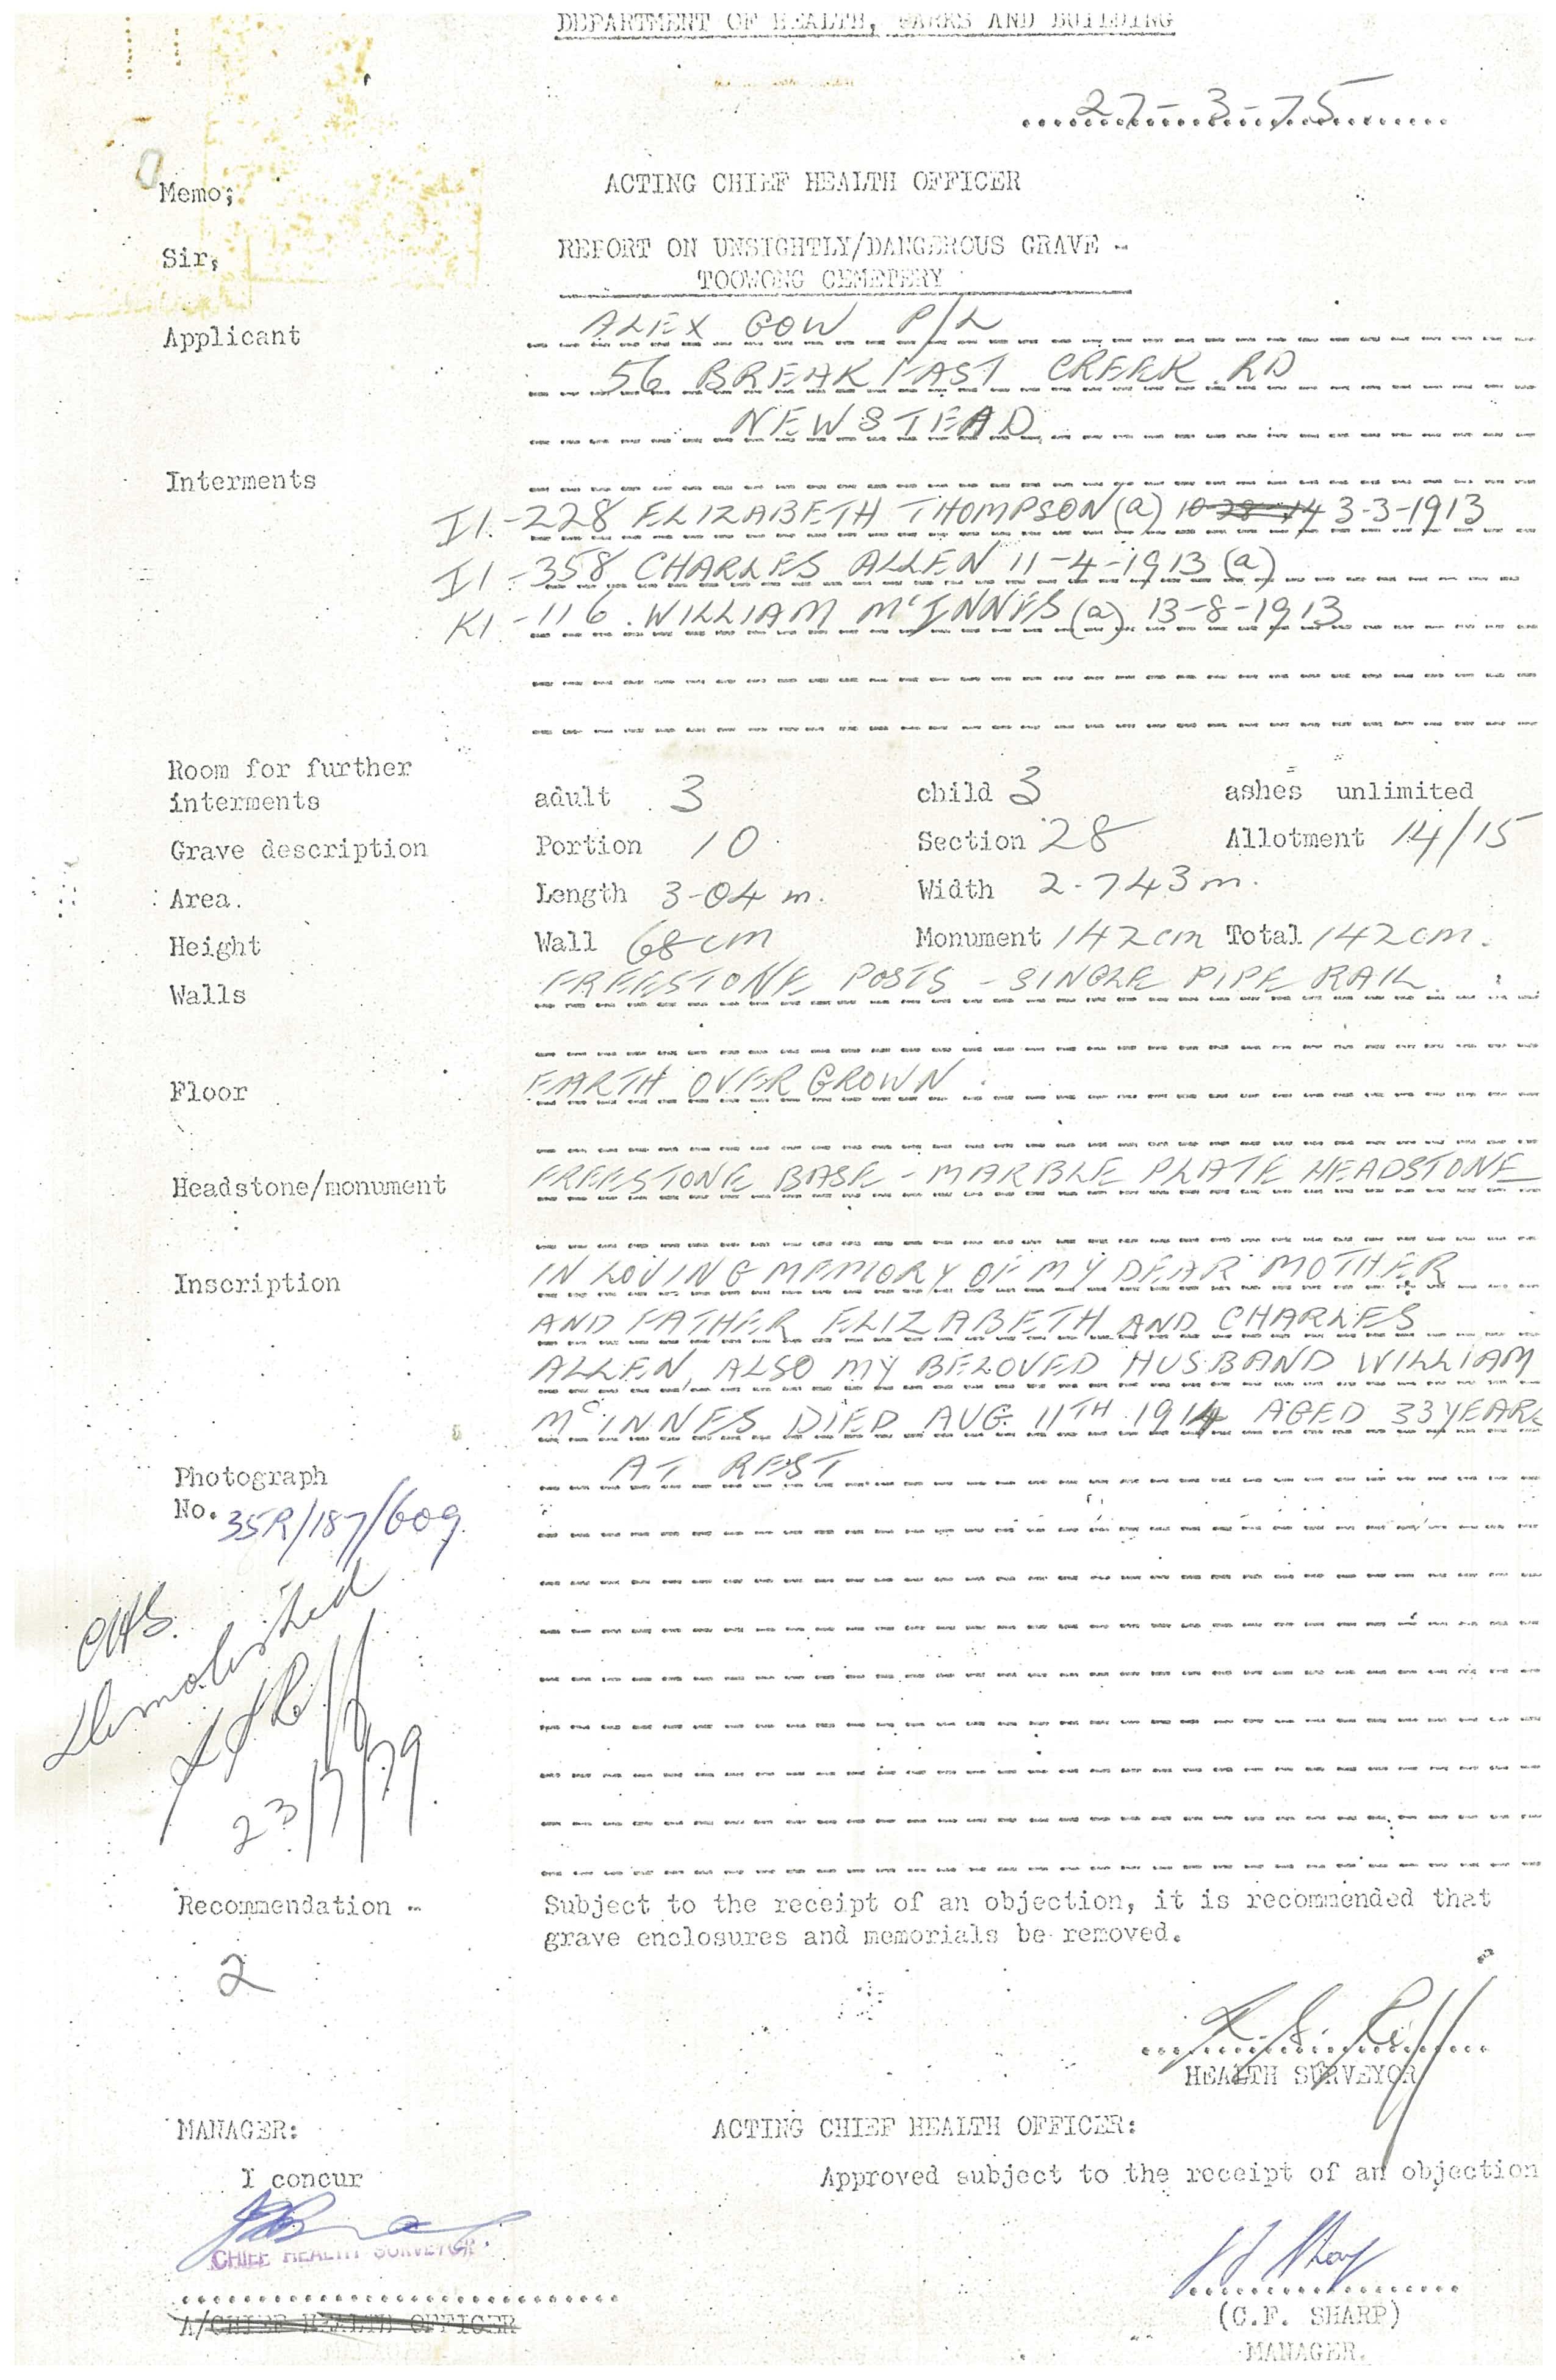 DEPARTMENT OF HEALTH, PARKS AND BUILDING
27-3-75
Memo; ACTING CHIEF HEALTH OFFICER
Sir, REPORT ON UNSIGHTLY/DANGEROUS GRAVE -
TOOWONG CEMETERY
Applicant ALEX GOW P/L
56 BREAKFAST CREEK RD
NEWSTEAD
Interments
I1-228 ELIZABETH THOMPSON (a) 10-28-14 3-3-1913
I1-358 CHARLES ALLEN 11-4-1913 (a)
K1-116. WILLIAM McINNES (a) 13-8-1913
Room for further
interments adult 3 child 3 ashes unlimited
Grave description Portion 10 Section 28 Allotment 14/15
Area. Length 3-04 m. Width 2-743m.
Height Wall 68cm Monument 142cm Total 142cm.
Walls FREESTONE POSTS - SINGLE PIPE RAIL.
Floor EARTH OVERGROWN.
Headstone/monument FREESTONE BASE - MARBLE PLATE HEADSTONE
Inscription IN LOVING MEMORY OF MY DEAR MOTHER
AND FATHER ELIZABETH AND CHARLES
ALLEN, ALSO MY BELOVED HUSBAND WILLIAM
McINNES DIED AUG. 11TH 1914 AGED 33 YEARS
Photograph AT REST
No. 35R/187/609.
CHS.
Demolished
23/7/79.
Recommendation - Subject to the receipt of an objection, it is recommended that
grave enclosures and memorials be removed.
2
HEALTH SURVEYOR
MANAGER: ACTING CHIEF HEALTH OFFICER:
I concur Approved subject to the receipt of an objection
CHIEF HEALTH SURVEYOR.
A/CHIEF HEALTH OFFICER
(C.F. SHARP)
MANAGER.